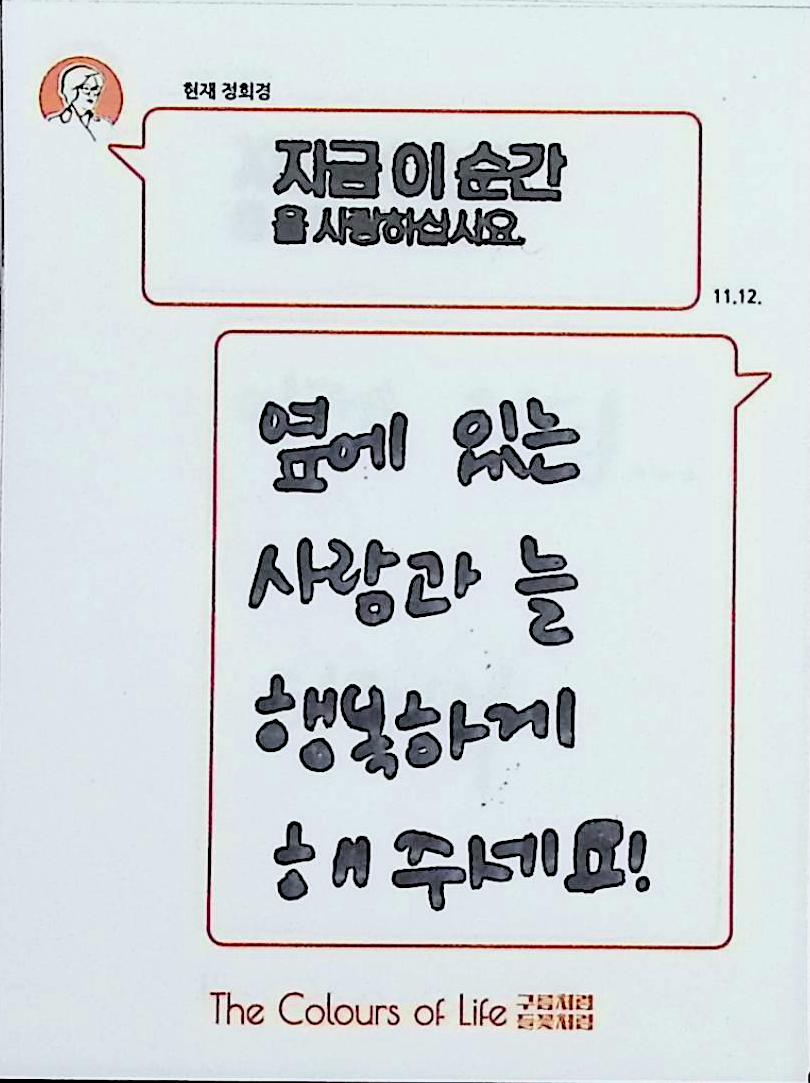 현재 정희경
지금 이 순간
을 사랑하십시요.
11.12.
옆에 있는
사람과 늘
행복하게
해 주세요!
The Colours of Life 구름처럼
들꽃처럼